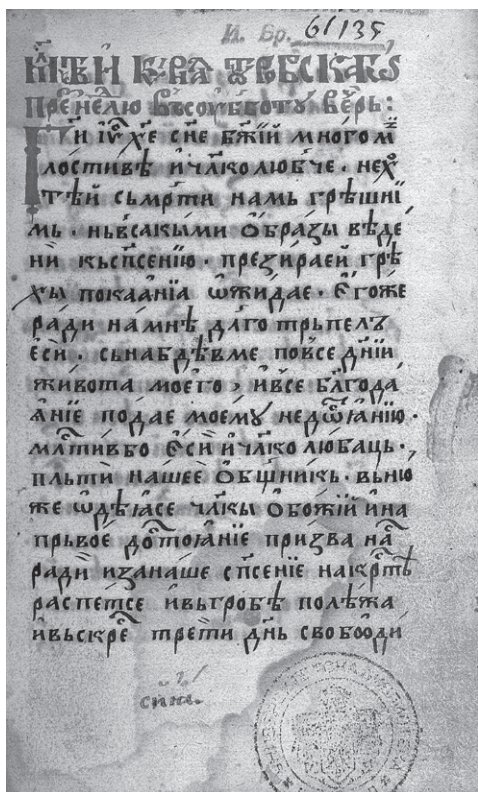 И. Бр. 61/135
Прⷣенеⷣлю вьсоуботоу веⷱрь:
Гⷭ҇и іѵ҃ х҃е сн҃е бж҃їй многомⷧ
лостивѣ и чл҃колюбче · нехѡⷮ
тѣй сьмрти намь грѣшнї
мь · ньвсакыми ѻбразы вѣде
ни кьспⷭ҇сенїю · презираей грѣ
хы покаанїа ѡжидае · Єгоже
ради намнѣ длго трьпелъ
єси · сьнабдѣвме повсе днїи
живота моєго, ивсе бл҃года
ꙗнїе подае моемꙋ недⷭ҇оꙗнїю ·
млⷭ҇тивбо єси и чл҃колюбаць ·
пльти нашее ѻбщникь · вьню
же ѡдѣꙗсе чл҃кы ѻбожїй ина
прьвое доⷭ҇тоꙗнїе призва наⷭ
ради изанаше сп҃сенїе накрⷭ҇тѣ
распетсе ивьгробѣ полѣжа
ивьскрⷭ҇е трети дн҃ь свободи